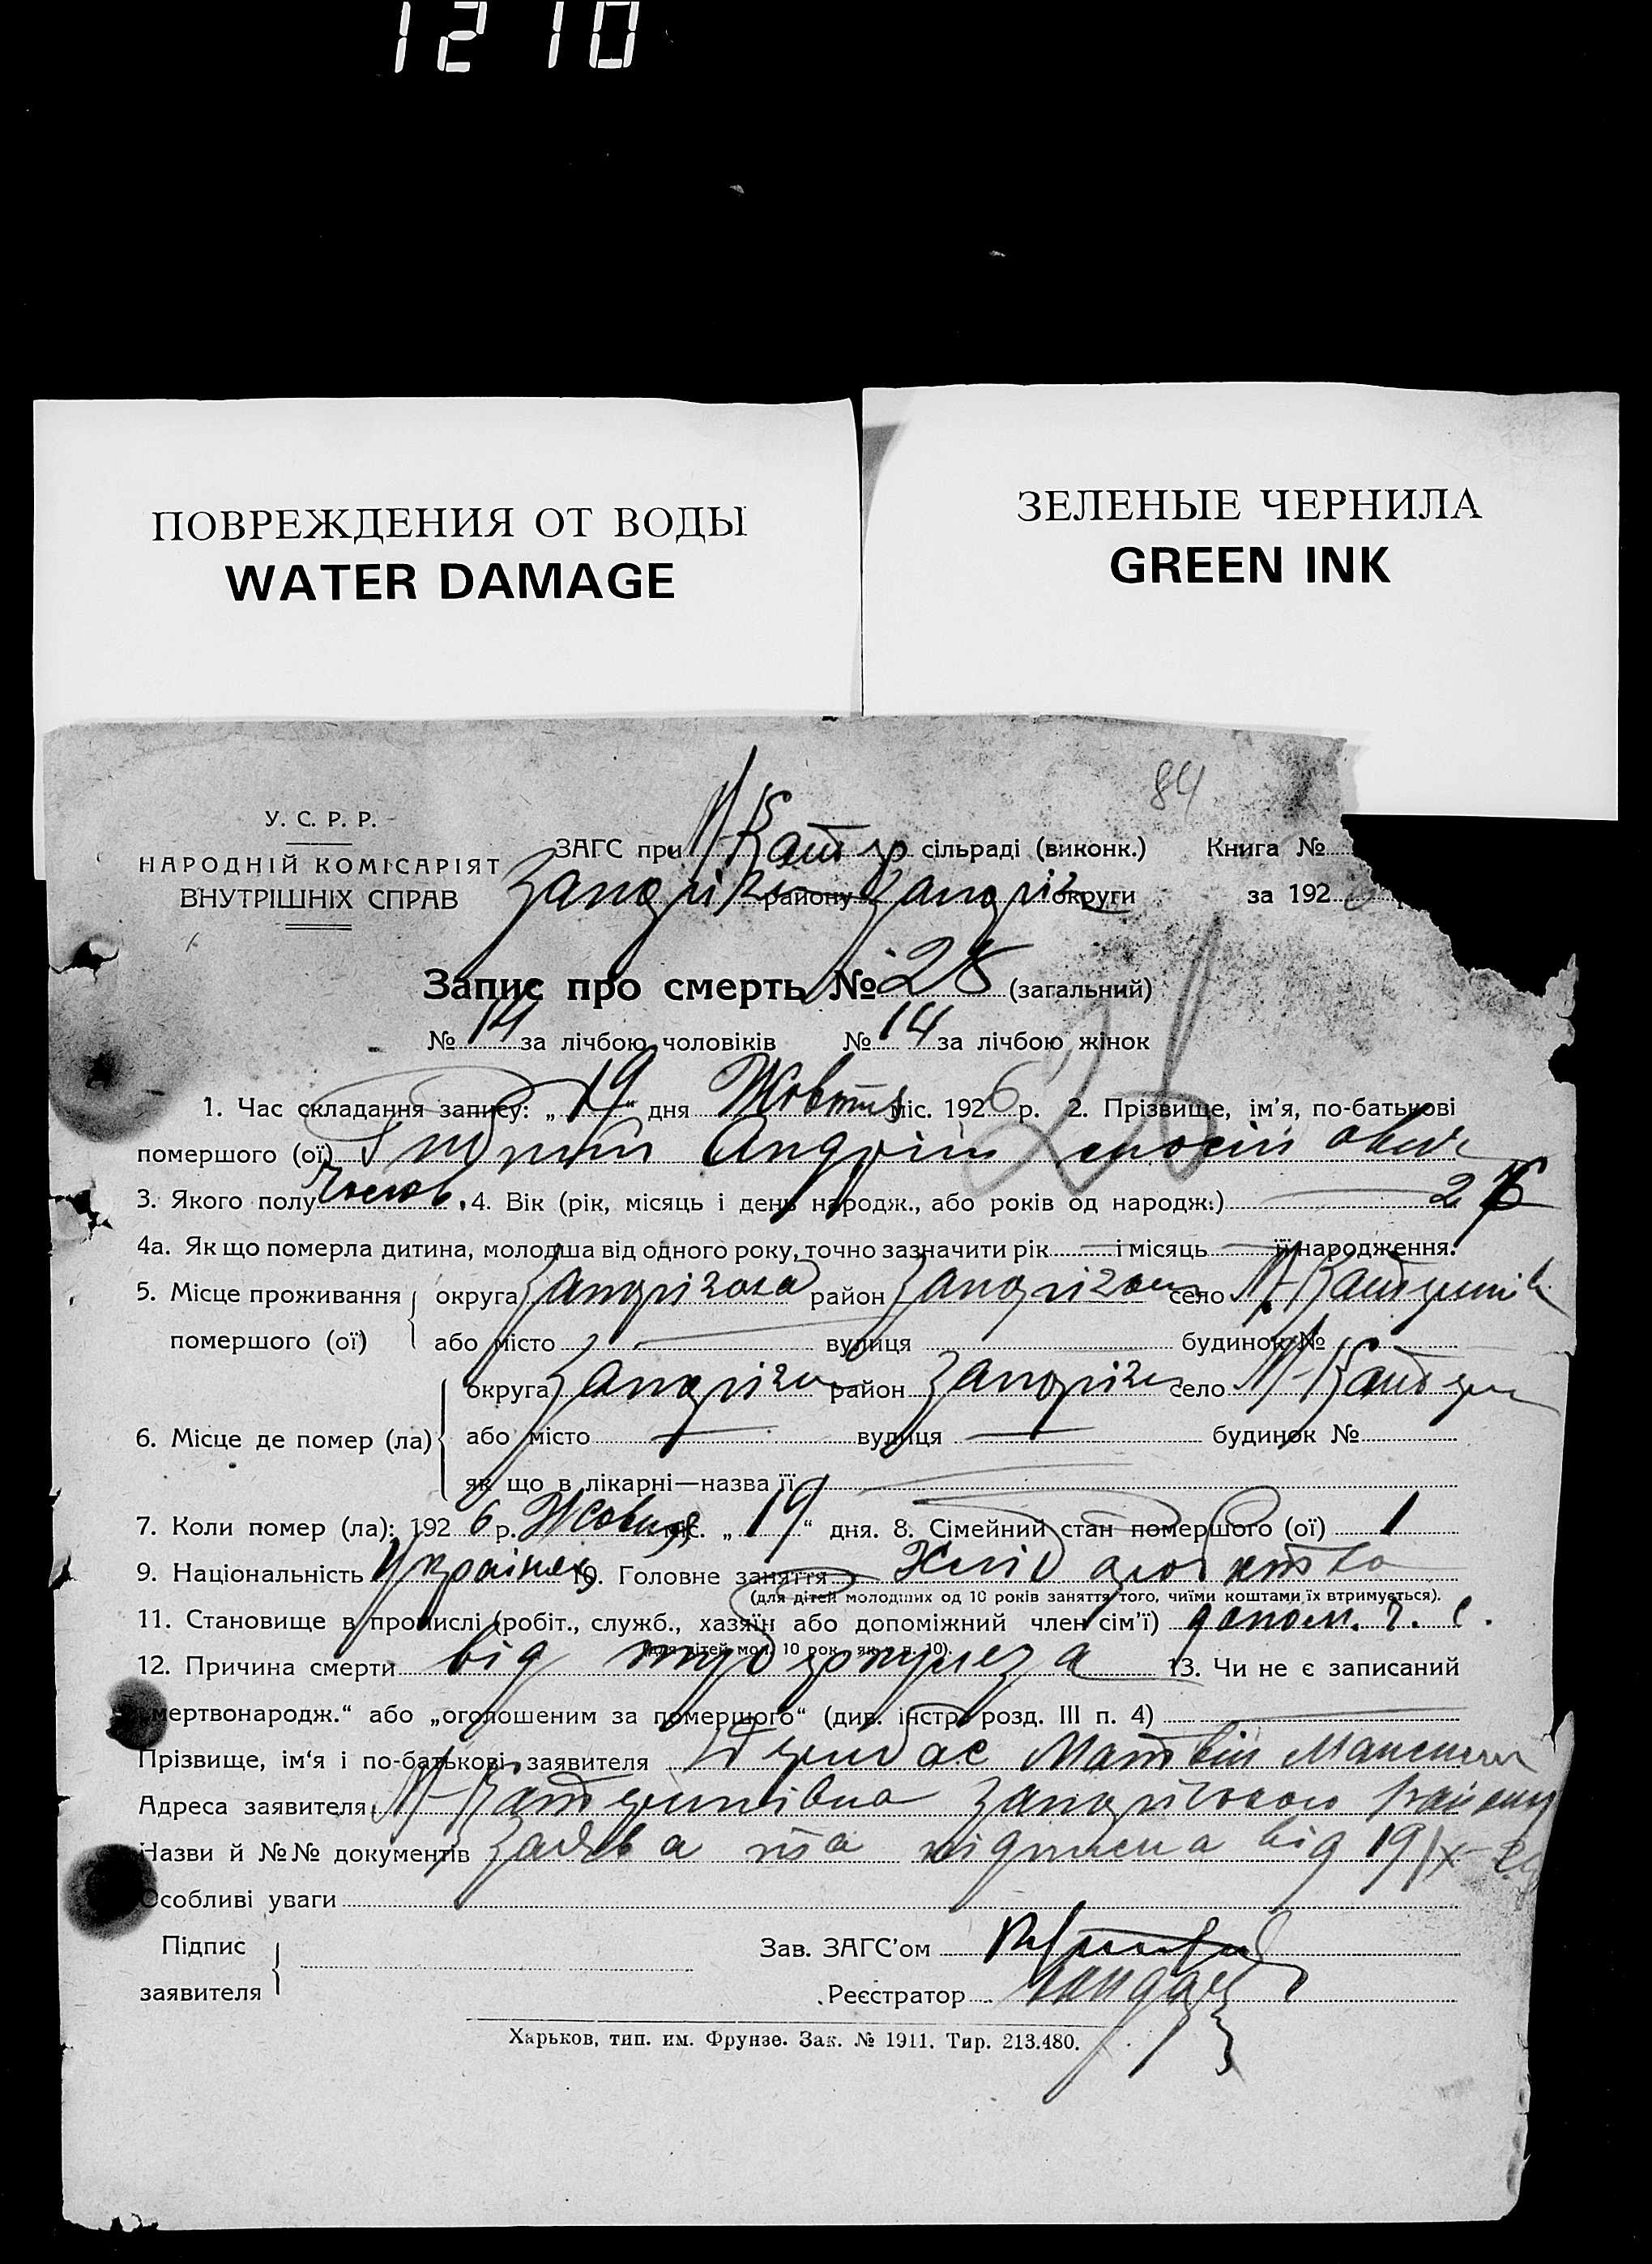 12 10
ПОВРЕЖДЕНИЯ ОТ ВОДЫ
WATER DAMAGE
ЗЕЛЕНЫЕ ЧЕРНИЛА
GREEN INK
84
У. С. Р. Р.
НАРОДНІЙ КОМІСАРІЯТ
ВНУТРІШНІХ СПРАВ
ЗАГС при М-Катер сільраді (виконк.) Книга №
Запоріз району Запоріз округи за 192 6
Запис про смерть № 28 (загальний)
№ 14 за лічбою чоловіків № 14 за лічбою жінок
26
1. Час складання запису: „ 19 “ дня Жовтня міс. 192 6 р. 2. Прізвище, ім’я, по-батькові
помершого (ої) Андрій
3. Якого полу Чолов. 4. Вік (рік, місяць і день народж., або років од народж.) 26
4а. Як що померла дитина, молодша від одного року, точно зазначити рік — і місяць — її народження.
5. Місце проживання округа Запорізька район Запорізьк село М-Катеринів
помершого (ої) або місто — вулиця будинок №
округа Запорізьк район Запорізьк село М-Катерин
6. Місце де помер (ла) або місто — вулиця — будинок №
як що в лікарні—назва її —
7. Коли помер (ла): 192 6 р. Жовтня міс. „ 19 “ дня. 8. Сімейний стан помершого (ої) 1
9. Національність Українец 10. Головне заняття Хлібробство
(для дітей молодших од 10 років заняття того, чиїми коштами їх втримується).
11. Становище в промислі (робіт., служб., хазяїн або допоміжний член сім’ї) допом. ч. с.
(для дітей мол. 10 рок. як у п. 10).
12. Причина смерти від туберкульоза 13. Чи не є записаний
„мертвонародж.“ або „оголошеним за помершого“ (див. інстр. розд. III п. 4) —
Прізвище, ім‘я і по-батькові заявителя Матвій
Адреса заявителя М-Катеринівка Запорізького району
Назви й №№ документів Заява від 19/X-26
Особливі уваги
Підпис
заявителя
Зав. ЗАГС’ом
Реєстратор
Харьков, тип. им. Фрунзе. Зак. № 1911. Тир. 213.480.